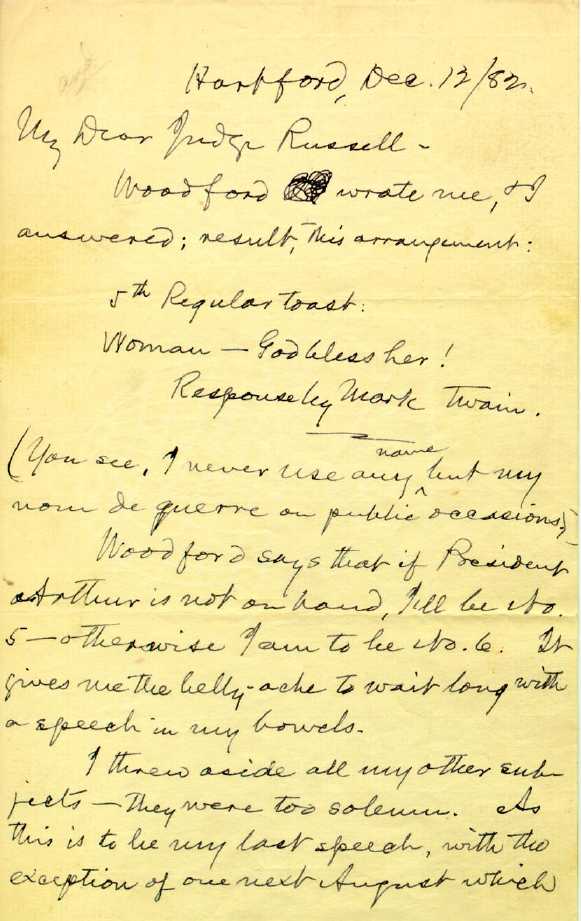 Hartford, Dec. 12/82.
My Dear Judge Russell –
Woodford wrote me, & I
answered; result, this arrangement:
5th Regular toast:
Woman — God bless her!
Response by Mark Twain.
(You see, I never use any name but my
nom de guerre on public occasions.)
Woodford says that if President
Arthur is not on hand, I'll be No.
5 — otherwise I am to be No. 6. It
gives me the belly-ache to wait long with
a speech in my bowels.
I threw aside all my other sub-
jects — they were too solemn. As
this is to be my last speech, with the
exception of one next August which